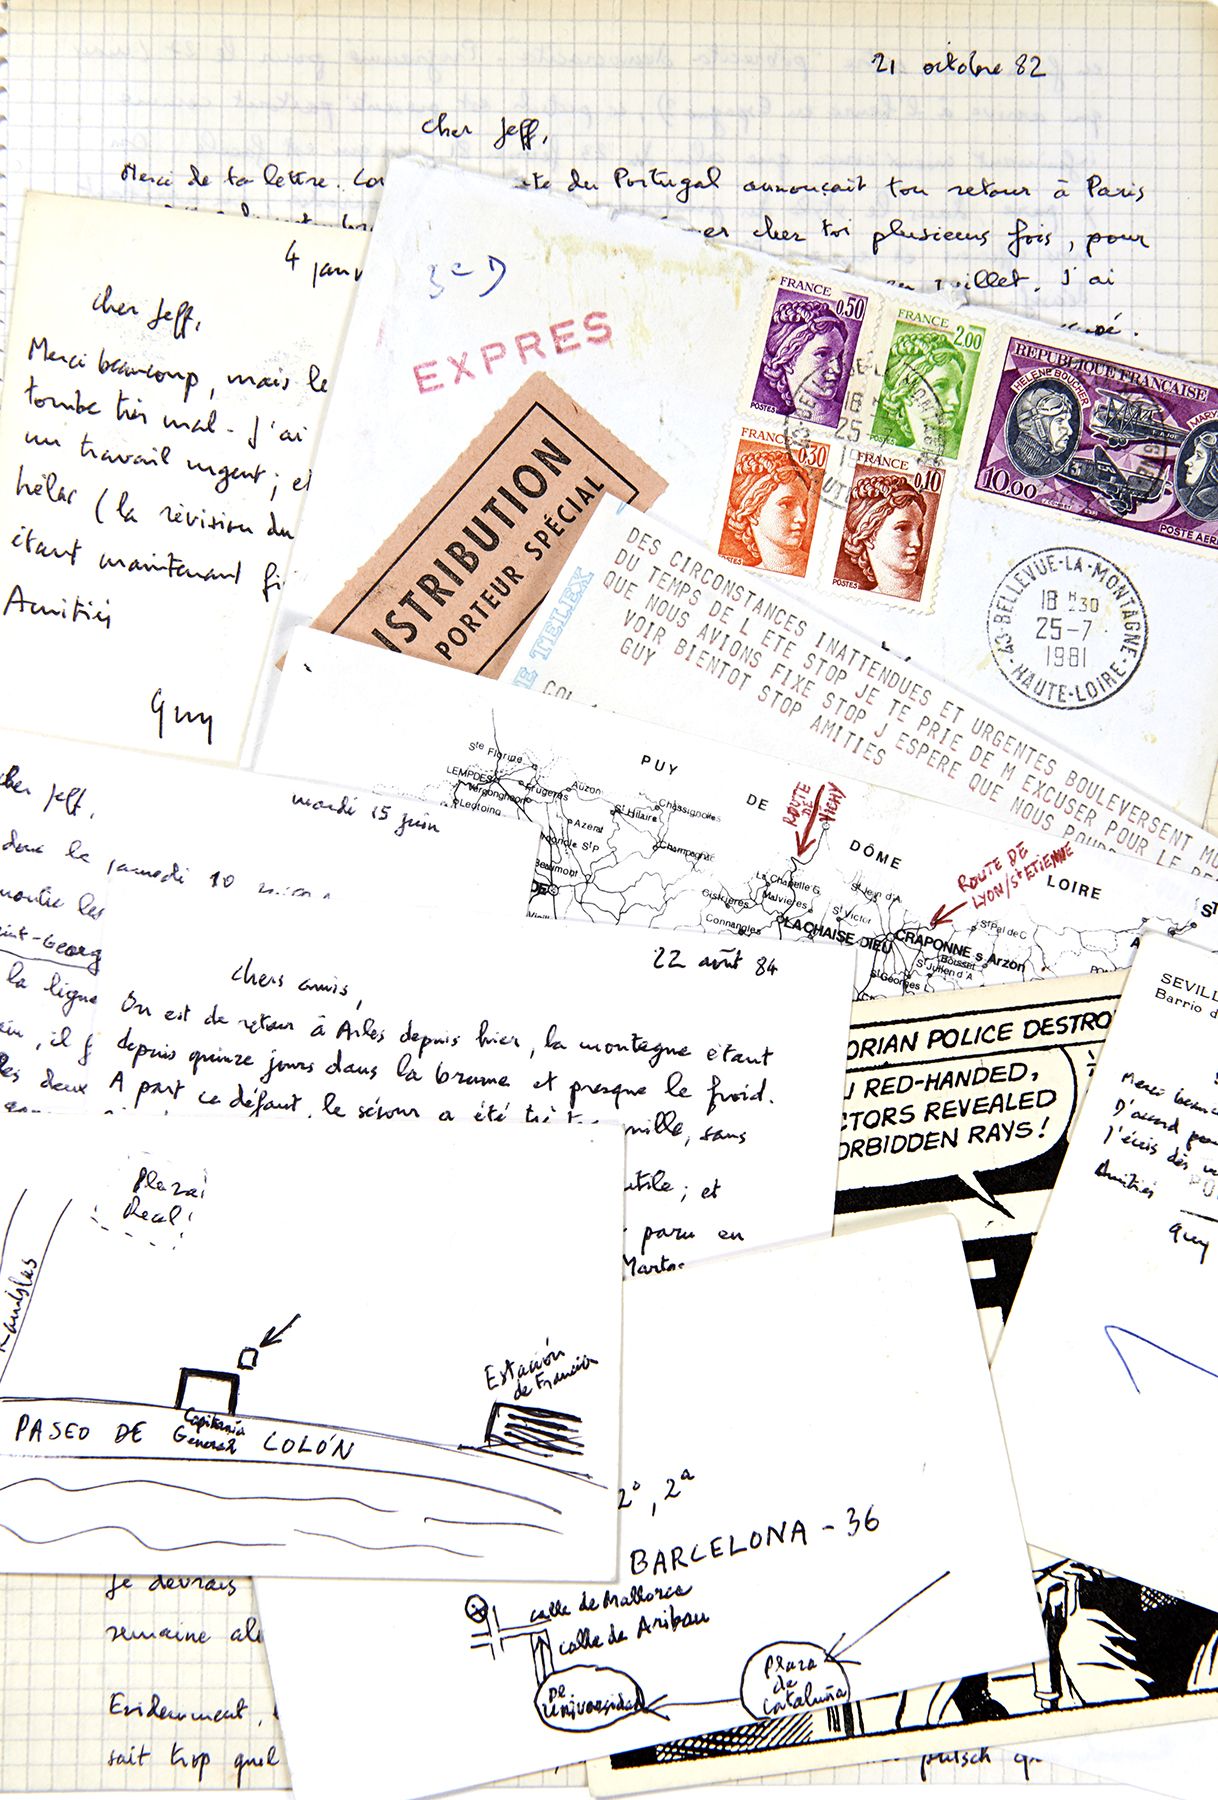 21 octobre 82
cher Jeff,
Merci de ta lettre. du Portugal annonçait ton retour à Paris
cher toi plusieurs fois, pour
J'ai
4 janv
cher Jeff,
Merci beaucoup, mais le
tombe très mal - J'ai
un travail urgent; et
hélas (la révision du
étant maintenant fi
Amitiés
Guy
EXPRES
FRANCE 0,50
POSTES
FRANCE 2,00
POSTES
FRANCE 0,30
POSTES
FRANCE 0,10
POSTES
REPUBLIQUE FRANÇAISE
HELENE BOUCHER
MARY
10,00
POSTE AER
43-BELLEVUE-LA-MONTAGNE
18 H 30
25-7
1981
HAUTE-LOIRE
ISTRIBUTION
PORTEUR SPÉCIAL
E TELEX
DES CIRCONSTANCES INATTENDUES ET URGENTES BOULEVERSENT MO
DU TEMPS DE L ETE STOP JE TE PRIE DE M EXCUSER POUR LE
QUE NOUS AVIONS FIXE STOP J ESPERE QUE NOUS POUR
VOIR BIENTOT STOP AMITIES
GUY
COL
PUY DE DÔME
LOIRE
ROUTE DE VICHY
ROUTE DE LYON/St ETIENNE
Ste Florine
LEMPDES
Vergongheon
Frugeres
Auzon
Azerat
St Hilaire
Chassignolles
Champagnac
La Chapelle G.
Malvières
Cistrières
Connangles
LA CHAISE-DIEU
St Victor
St Jean d'A
CRAPONNE s. Arzon
St Pal de C
Boisset
St Julien d'A
St Georges L
cher Jeff,
donc le samedi 10
la ligne
mardi 15 juin
22 août 84
Chers amis,
On est de retour à Arles depuis hier, la montagne étant
depuis quinze jours dans la brume et presque le froid.
A part ce défaut, le séjour a été très tranquille, sans
utile; et
paru en
ORIAN POLICE DESTRO
RED-HANDED,
CTORS REVEALED
ORBIDDEN RAYS!
SEVILL
Barrio d
Merci beauco
D'accord pou
J'écris dès
Amitiés
Guy
Plaza
Real
Ramblas
Estación
de Francia
Capitanía
General
PASEO DE COLÓN
2º, 2ª
BARCELONA - 36
calle de Mallorca
calle de Aribau
Pl. Universidad
Plaza
de
Cataluña
Je devrais
semaine
Evidemment,
sait trop quel
putsch